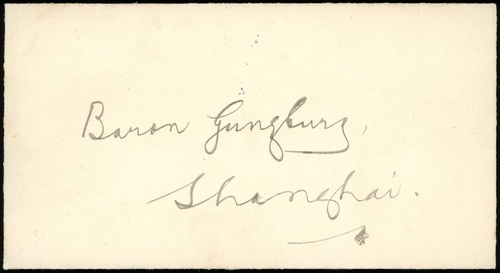 Baron Gungburg,
Shanghai.